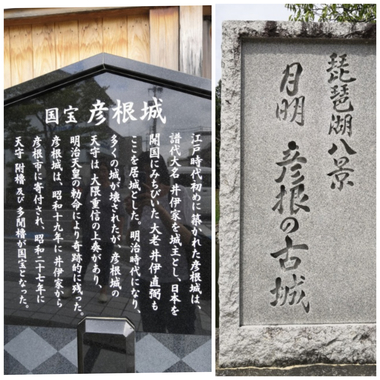 国宝 彦根城
江戸時代初めに築かれた彦根城は、
譜代大名 井伊家を城主とし、日本を
開国にみちびいた 大老 井伊直弼も
ここを居城とした。明治時代になり、
多くの城が壊されたが、彦根城の
天守は 大隈重信の上奏があり、
明治天皇の勅命により奇跡的に残った。
彦根城は、昭和十九年に 井伊家から
彦根市に寄付され、昭和二十七年に
天守 附櫓 及び 多聞櫓が国宝となった。
琵琶湖八景
月明 彦根の古城